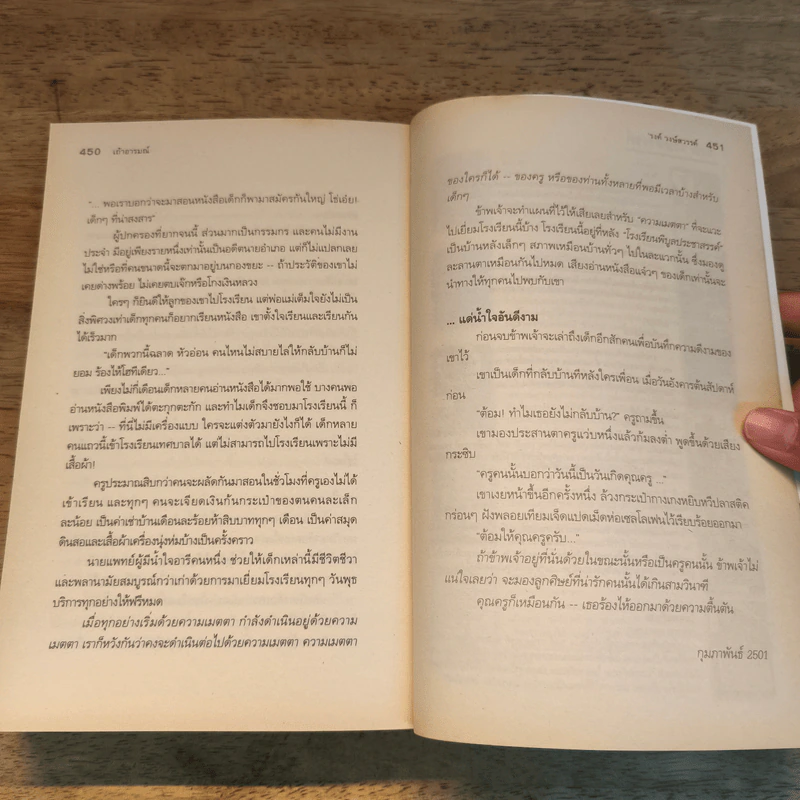 450 เถ้าอารมณ์
"... พอเราบอกว่าจะมาสอนหนังสือเด็กก็พามาสมัครกันใหญ่ โธ่เอ๋ย!
เด็กๆ ที่น่าสงสาร"
ผู้ปกครองที่ยากจนนี้ ส่วนมากเป็นกรรมกร และคนไม่มีงาน
ประจำ มีอยู่เพียงรายหนึ่งเท่านั้นเป็นอดีตนายอำเภอ แต่ก็ไม่แปลกเลย
ไม่ใช่หรือที่คนขนาดนี้จะตกมาอยู่บนกองขยะ -- ถ้าประวัติของเขาไม่
เคยด่างพร้อย ไม่เคยตบเจ๊กหรือโกงเงินหลวง
ใครๆ ก็ยินดีให้ลูกของเขาไปโรงเรียน แต่พ่อแม่เต็มใจยังไม่เป็น
สิ่งพิศวงเท่าเด็กทุกคนก็อยากเรียนหนังสือ เขาตั้งใจเรียนและเรียนกัน
ได้เร็วมาก
"เด็กพวกนี้ฉลาด หัวอ่อน คนไหนไม่สบายไล่ให้กลับบ้านก็ไม่
ยอม ร้องไห้โฮทีเดียว..."
เพียงไม่กี่เดือนเด็กหลายคนอ่านหนังสือได้มากพอใช้ บางคนพอ
อ่านหนังสือพิมพ์ได้ตะกุกตะกัก และทำไมเด็กจึงชอบมาโรงเรียนนี้ ก็
เพราะว่า -- ที่นี่ไม่มีเครื่องแบบ ใครจะแต่งตัวมายังไงก็ได้ เด็กหลาย
คนแถวนี้เข้าโรงเรียนเทศบาลได้ แต่ไม่สามารถไปโรงเรียนเพราะไม่มี
เสื้อผ้า!
ครูประมาณสิบกว่าคนจะผลัดกันมาสอนในชั่วโมงที่ครูเองไม่ได้
เข้าเรียน และทุกๆ คนจะเจียดเงินก้นกระเป๋าของตนคนละเล็ก
ละน้อย เป็นค่าเช่าบ้านเดือนละร้อยห้าสิบบาททุกๆ เดือน เป็นค่าสมุด
ดินสอและเสื้อผ้าเครื่องนุ่งห่มบ้างเป็นครั้งคราว
นายแพทย์ผู้มีน้ำใจอารีคนหนึ่ง ช่วยให้เด็กเหล่านี้มีชีวิตชีวา
และพลานามัยสมบูรณ์กว่าเก่าด้วยการมาเยี่ยมโรงเรียนทุกๆ วันพุธ
บริการทุกอย่างให้ฟรีหมด
เมื่อทุกอย่างเริ่มด้วยความเมตตา กำลังดำเนินอยู่ด้วยความ
เมตตา เราก็หวังกันว่าคงจะดำเนินต่อไปด้วยความเมตตา ความเมตตา
'รงค์ วงษ์สวรรค์ 451
ของใครก็ได้ -- ของครู หรือของท่านทั้งหลายที่พอมีเวลาบ้างสำหรับ
เด็กๆ
ข้าพเจ้าจะทำแผนที่ไว้ให้เสียเลยสำหรับ "ความเมตตา" ที่จะแวะ
ไปเยี่ยมโรงเรียนนี้บ้าง โรงเรียนนี้อยู่ที่หลัง "โรงเรียนพิบูลประชาสรรค์"
เป็นบ้านหลังเล็กๆ สภาพเหมือนบ้านทั่วๆ ไปในละแวกนั้น ซึ่งมองดู
ละลานตาเหมือนกันไปหมด เสียงอ่านหนังสือแจ้วๆ ของเด็กเท่านั้นจะ
นำทางให้ทุกคนไปพบกับเขา
... แด่น้ำใจอันดีงาม
ก่อนจบข้าพเจ้าจะเล่าถึงเด็กอีกสักคนเพื่อบันทึกความดีงามของ
เขาไว้
เขาเป็นเด็กที่กลับบ้านทีหลังใครเพื่อน เมื่อวันอังคารต้นสัปดาห์
ก่อน
"ต้อม! ทำไมเธอยังไม่กลับบ้าน?" ครูถามขึ้น
เขามองประสานตาครูแว่บหนึ่งแล้วก้มลงต่ำ พูดขึ้นด้วยเสียง
กระซิบ
"ครูคนนั้นบอกว่าวันนี้เป็นวันเกิดคุณครู ..."
เขาเงยหน้าขึ้นอีกครั้งหนึ่ง ล้วงกระเป๋ากางเกงหยิบหวีปลาสติค
กร่อนๆ ฝังพลอยเทียมเจ็ดแปดเม็ดห่อเซลโลเฟนไว้เรียบร้อยออกมา
"ต้อมให้คุณครูครับ..."
ถ้าข้าพเจ้าอยู่ที่นั่นด้วยในขณะนั้นหรือเป็นครูคนนั้น ข้าพเจ้าไม่
แน่ใจเลยว่า จะมองลูกศิษย์ที่น่ารักคนนั้นได้เกินสามวินาที
คุณครูก็เหมือนกัน -- เธอร้องไห้ออกมาด้วยความตื้นตัน
กุมภาพันธ์ 2501